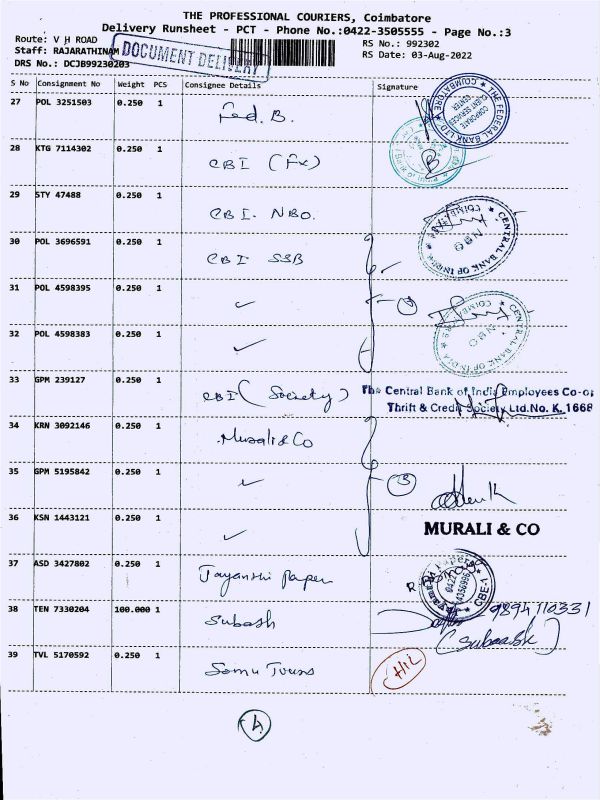 THE PROFESSIONAL COURIERS, Coimbatore
Delivery Runsheet - PCT - Phone No.:0422-3505555 - Page No.:3
Route: V H ROAD
RS No.: 992302
Staff: RAJARATHINAM
RS Date: 03-Aug-2022
DRS No.: DCJB99230203
DOCUMENT DELIVERY
S No Consignment No Weight PCS Consignee Details Signature
27 POL 3251503 0.250 1 Fed. B.
THE FEDERAL BANK LTD COIMBATORE
CORPORATE CLIENT SERVICES CENTER
28 KTG 7114302 0.250 1 CBI (Fx)
29 STY 47488 0.250 1 CBI. NBO.
CENTRAL BANK OF INDIA NBO
30 POL 3696591 0.250 1 CBI SSB
31 POL 4598395 0.250 1 ✓
CENTRAL BANK OF INDIA NBO
32 POL 4598383 0.250 1 ✓
33 GPM 239127 0.250 1 CBI (Society)
The Central Bank of India Employees Co-op
Thrift & Credit Society Ltd. No. K. 1668
34 KRN 3092146 0.250 1 Murali & Co
35 GPM 5195842 0.250 1 ✓ 3
36 KSN 1443121 0.250 1 ✓
MURALI & CO
37 ASD 3427802 0.250 1 Jayanthi paper
38 TEN 7330204 100.000 1 Subash
9894110331
(Subaash)
39 TVL 5170592 0.250 1 Somu Tours
H1L